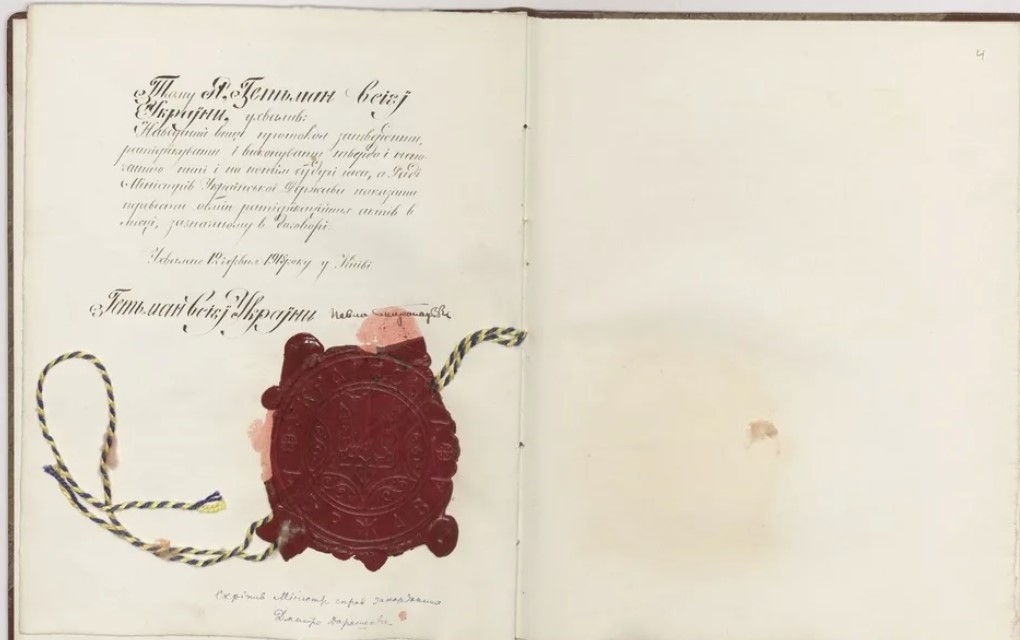 4
Тому Я, Гетьман Всієї
України, ухвалив:
Наведений вище протокол затвердити,
ратифікувати і виконувати твердо і
нині і на потім будучі часи, а Раді
Міністрів Української Держави наказати
перевести обмін ратифікаційних актів в
місці, зазначному в договорі.
Ухвалено 12 червня 1918 року у Київі.
Гетьман Всієї України Павло Скоропадський
Скріпив Міністр справ закордонних
Дмитро Дорошенко
ДЕРЖАВА